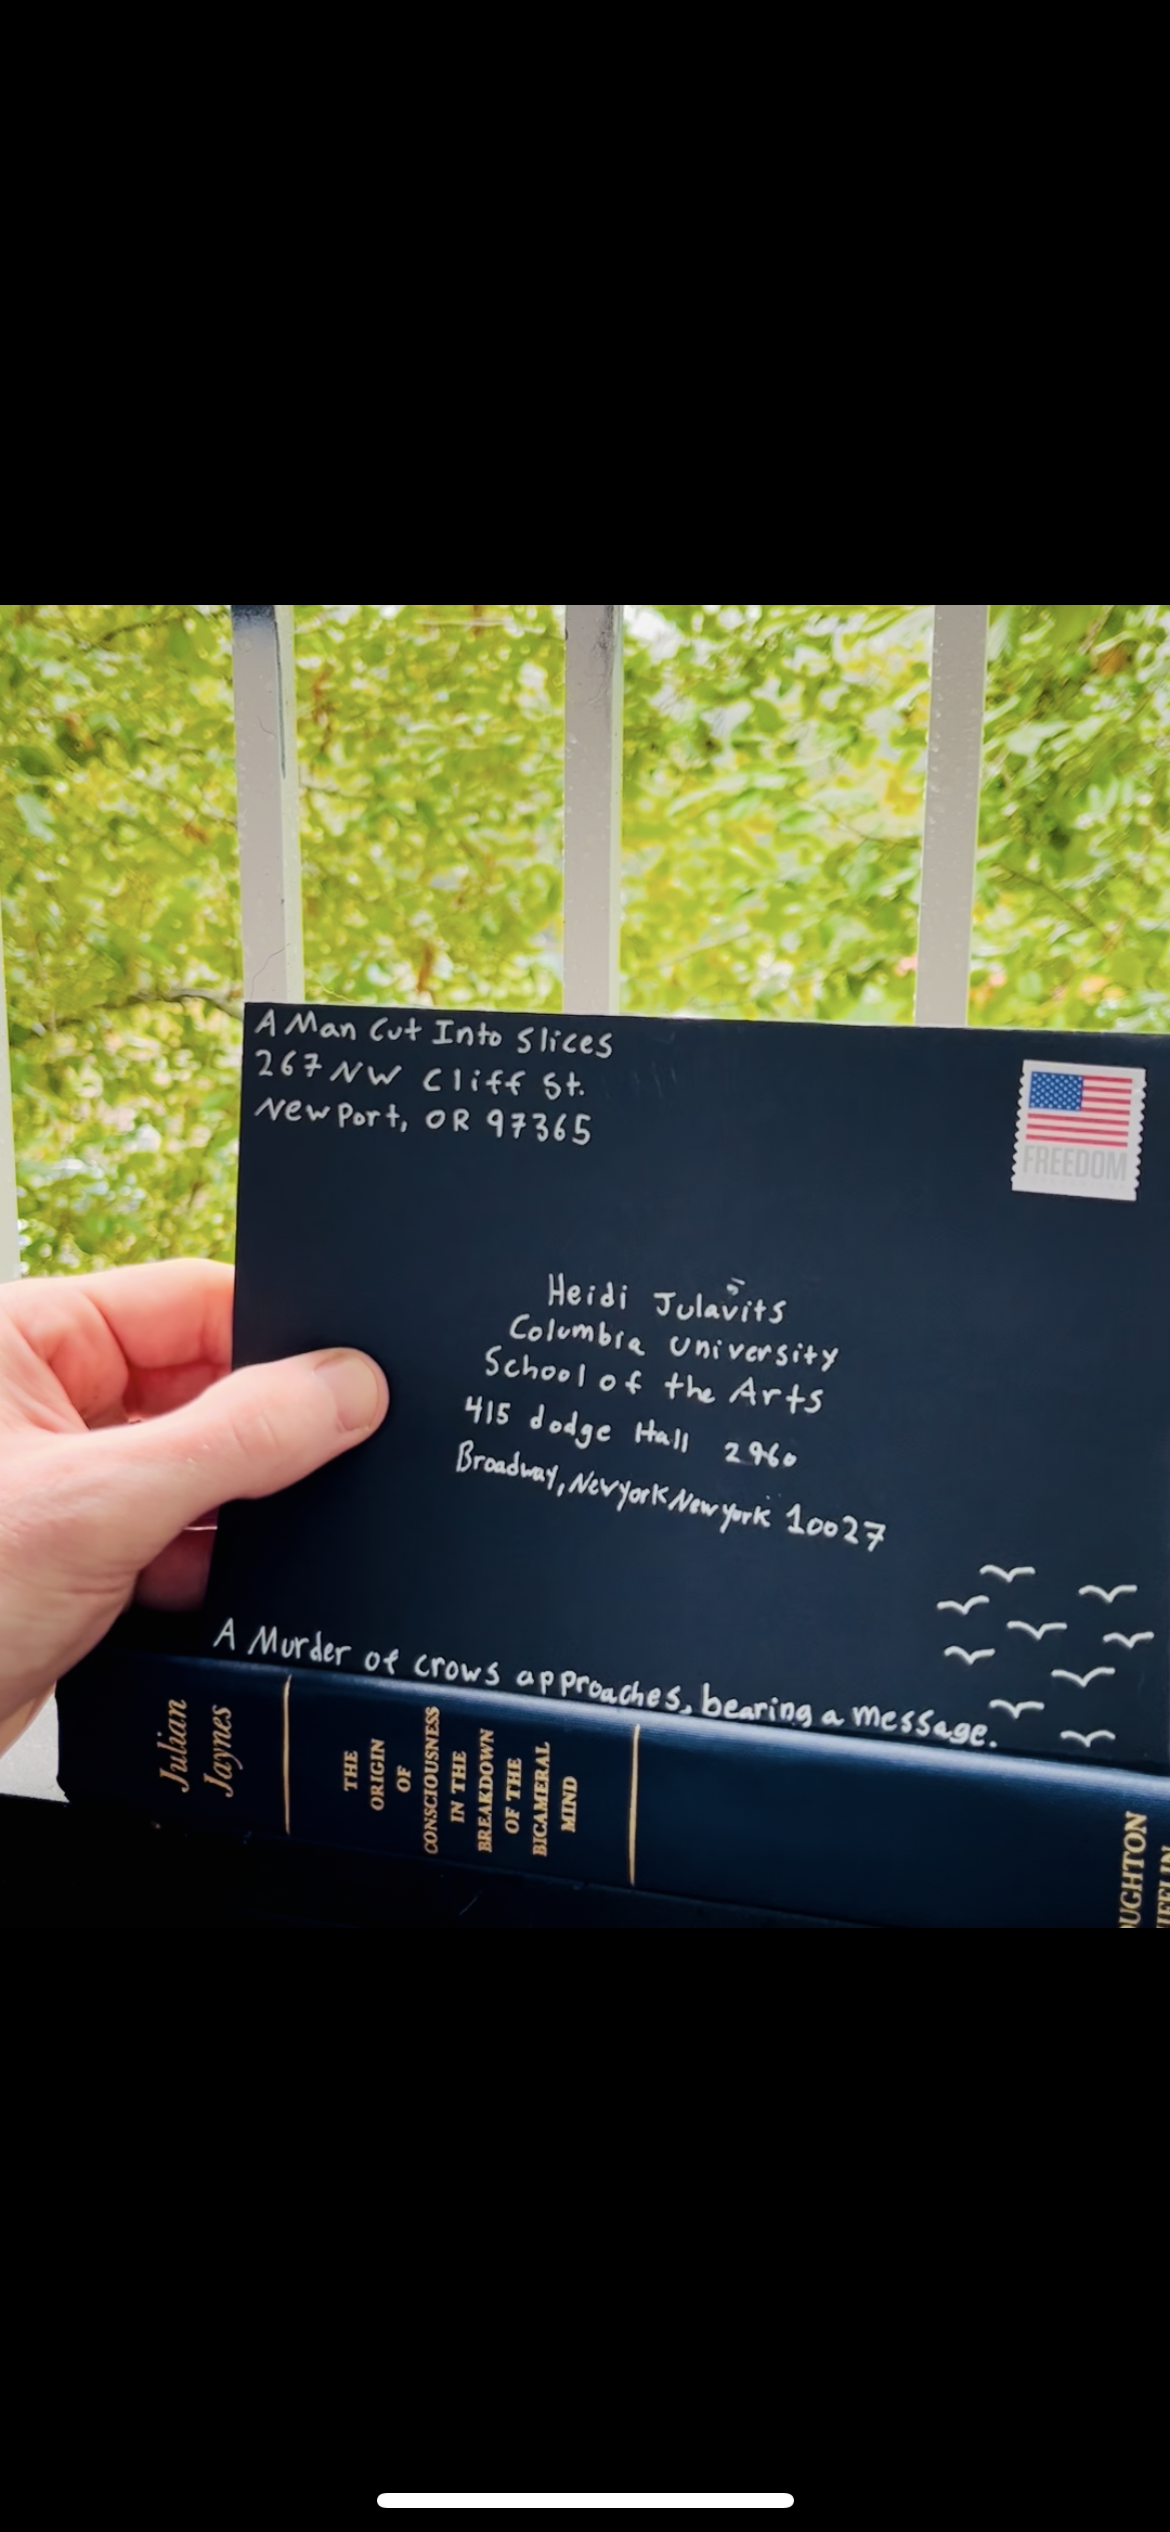 A Man Cut Into Slices
267 NW Cliff St.
Newport, OR 97365
FREEDOM
Heidi Julavits
Columbia University
School of the Arts
415 dodge Hall 2960
Broadway, New York New York 10027
A Murder of crows approaches, bearing a message.
Julian
Jaynes
THE
ORIGIN
OF
CONSCIOUSNESS
IN THE
BREAKDOWN
OF THE
BICAMERAL
MIND